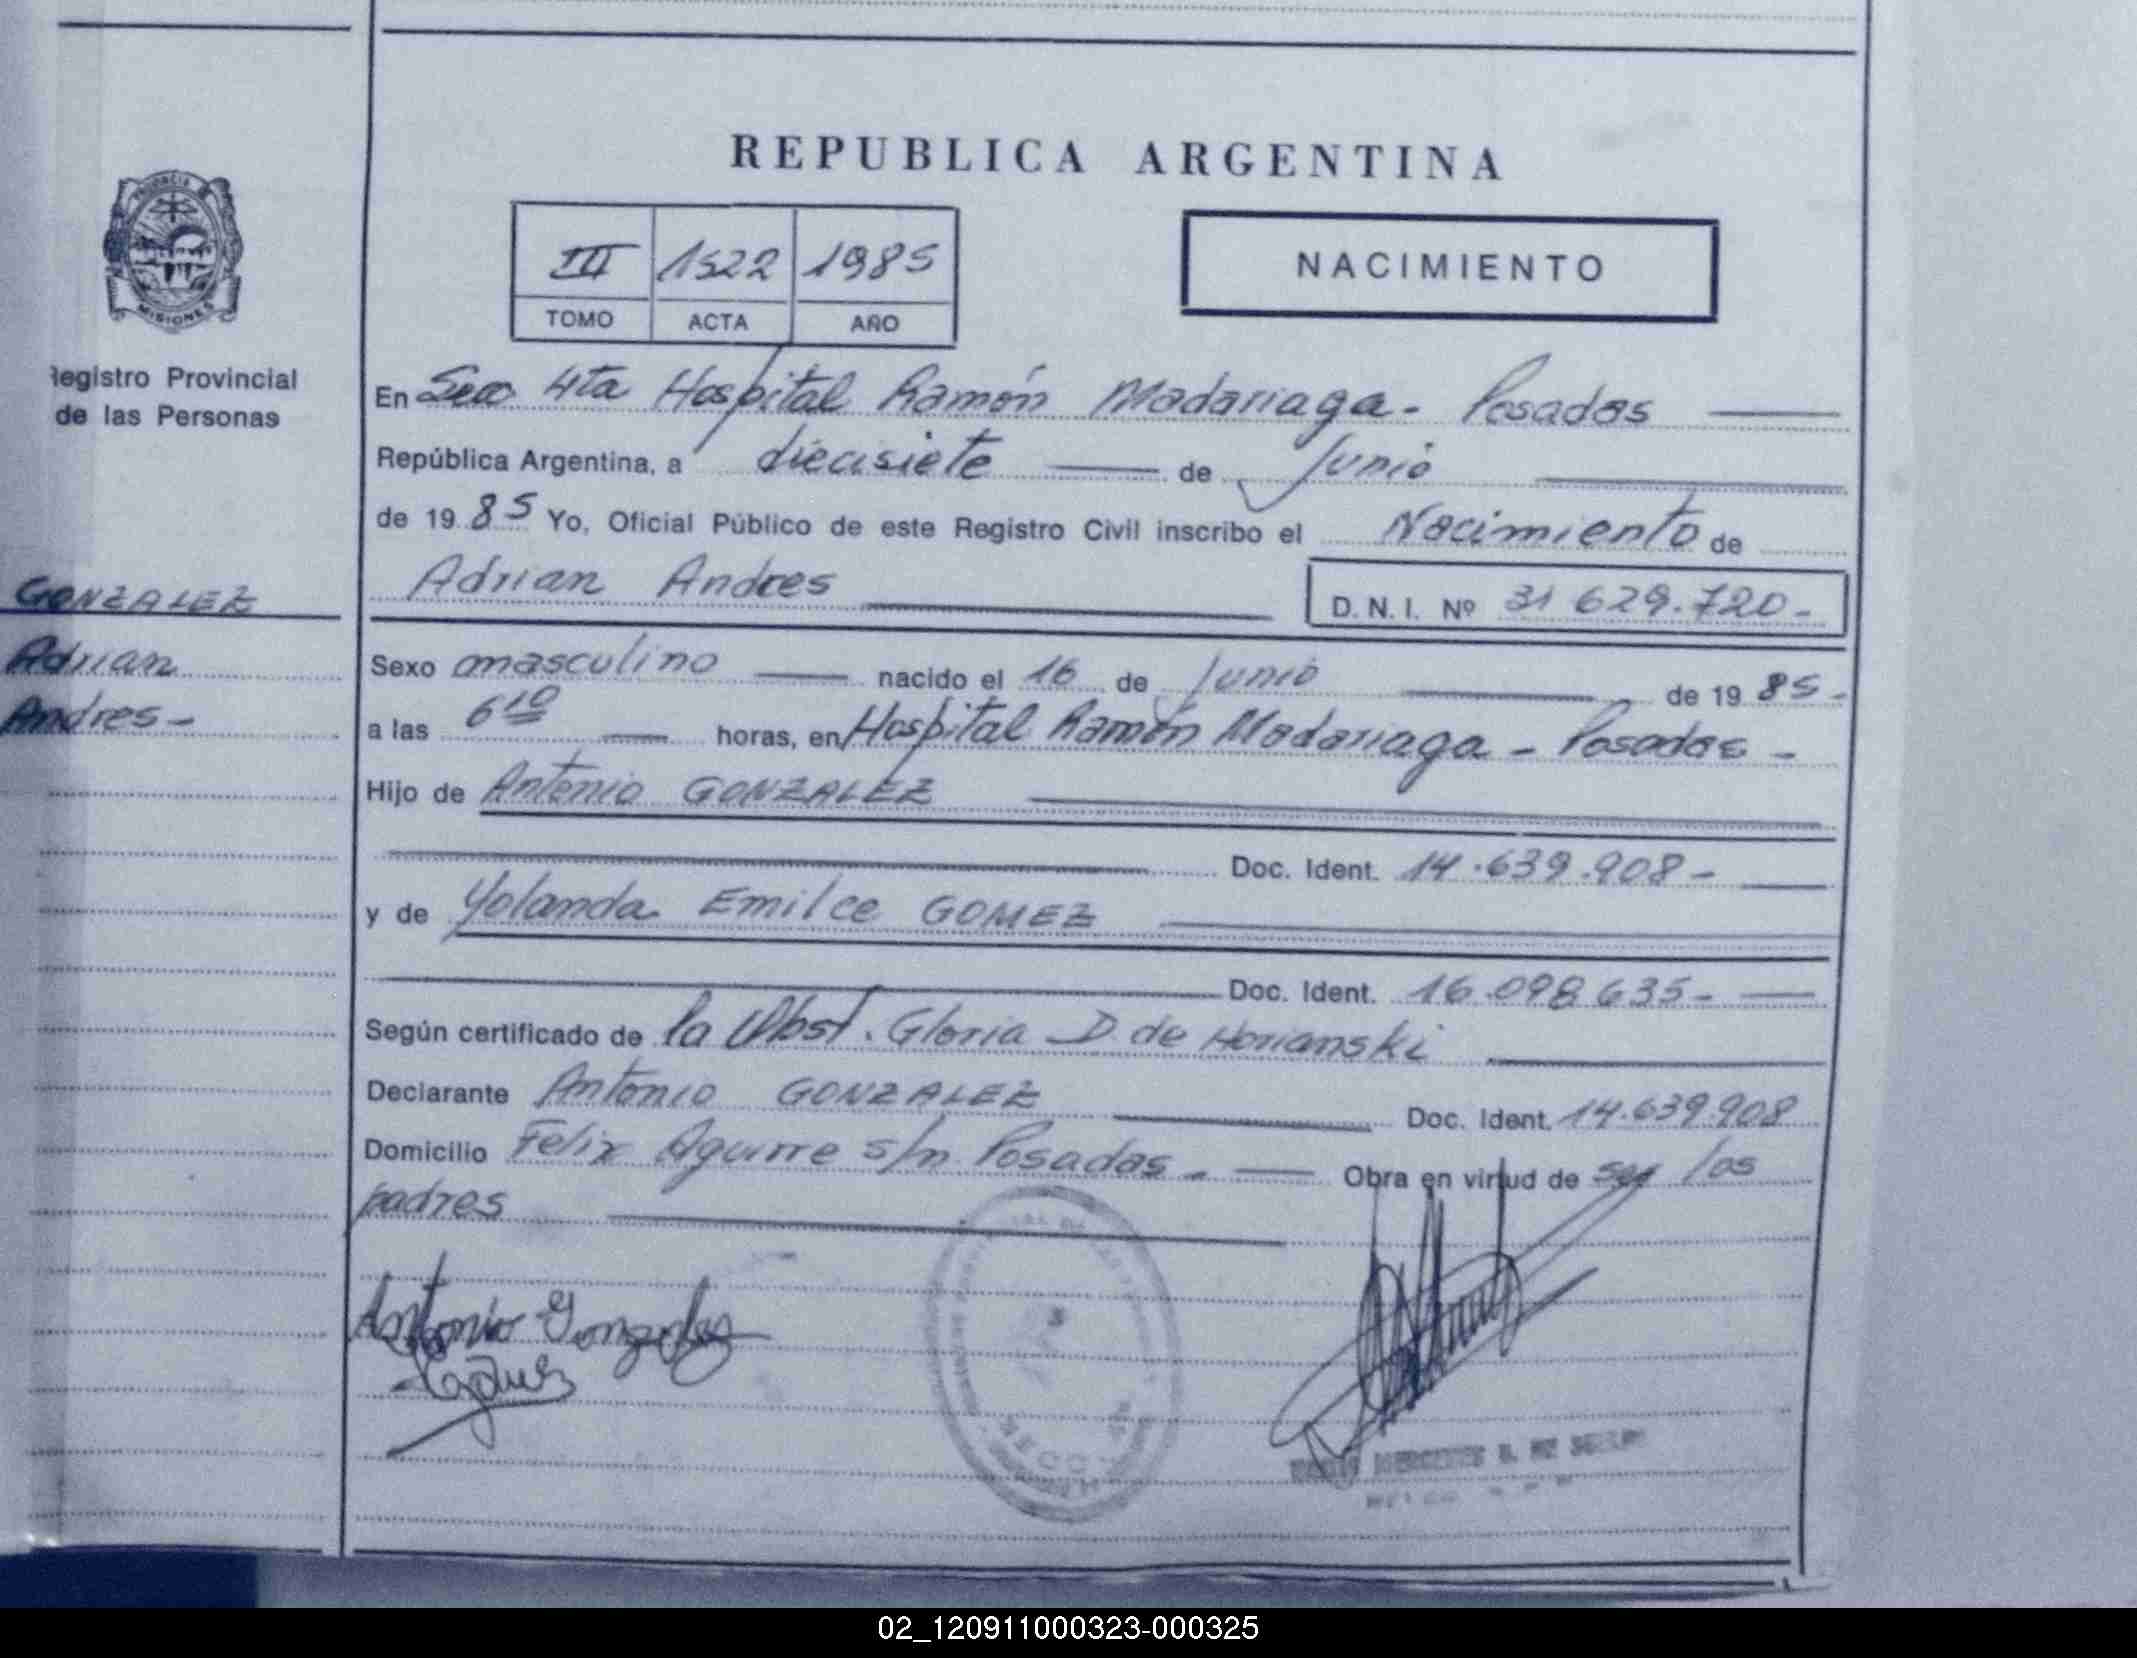 REPUBLICA ARGENTINA
III 1522 1985
TOMO ACTA AÑO
NACIMIENTO
PROVINCIA DE
MISIONES
Registro Provincial
de las Personas
GONZALEZ
Adrian
Andres -
En Secc. 4ta Hospital Ramón Madariaga - Posadas
República Argentina, a diecisiete de Junio
de 19 85 Yo, Oficial Público de este Registro Civil inscribo el Nacimiento de
Adrian Andres
D. N. I. Nº 31 629.720-
Sexo masculino nacido el 16 de Junio de 19 85-
a las 6 10 horas, en Hospital Ramón Madariaga - Posadas -
Hijo de Antonio GONZALEZ
Doc. Ident. 14.639.908-
y de Yolanda Emilce GOMEZ
Doc. Ident. 16.098 635-
Según certificado de la Obst. Gloria D. de Horianski
Declarante Antonio GONZALEZ Doc. Ident. 14.639.908
Domicilio Felix Aguirre s/n Posadas - Obra en virtud de ser los
padres
Antonio Gonzalez
02_120911000323-000325